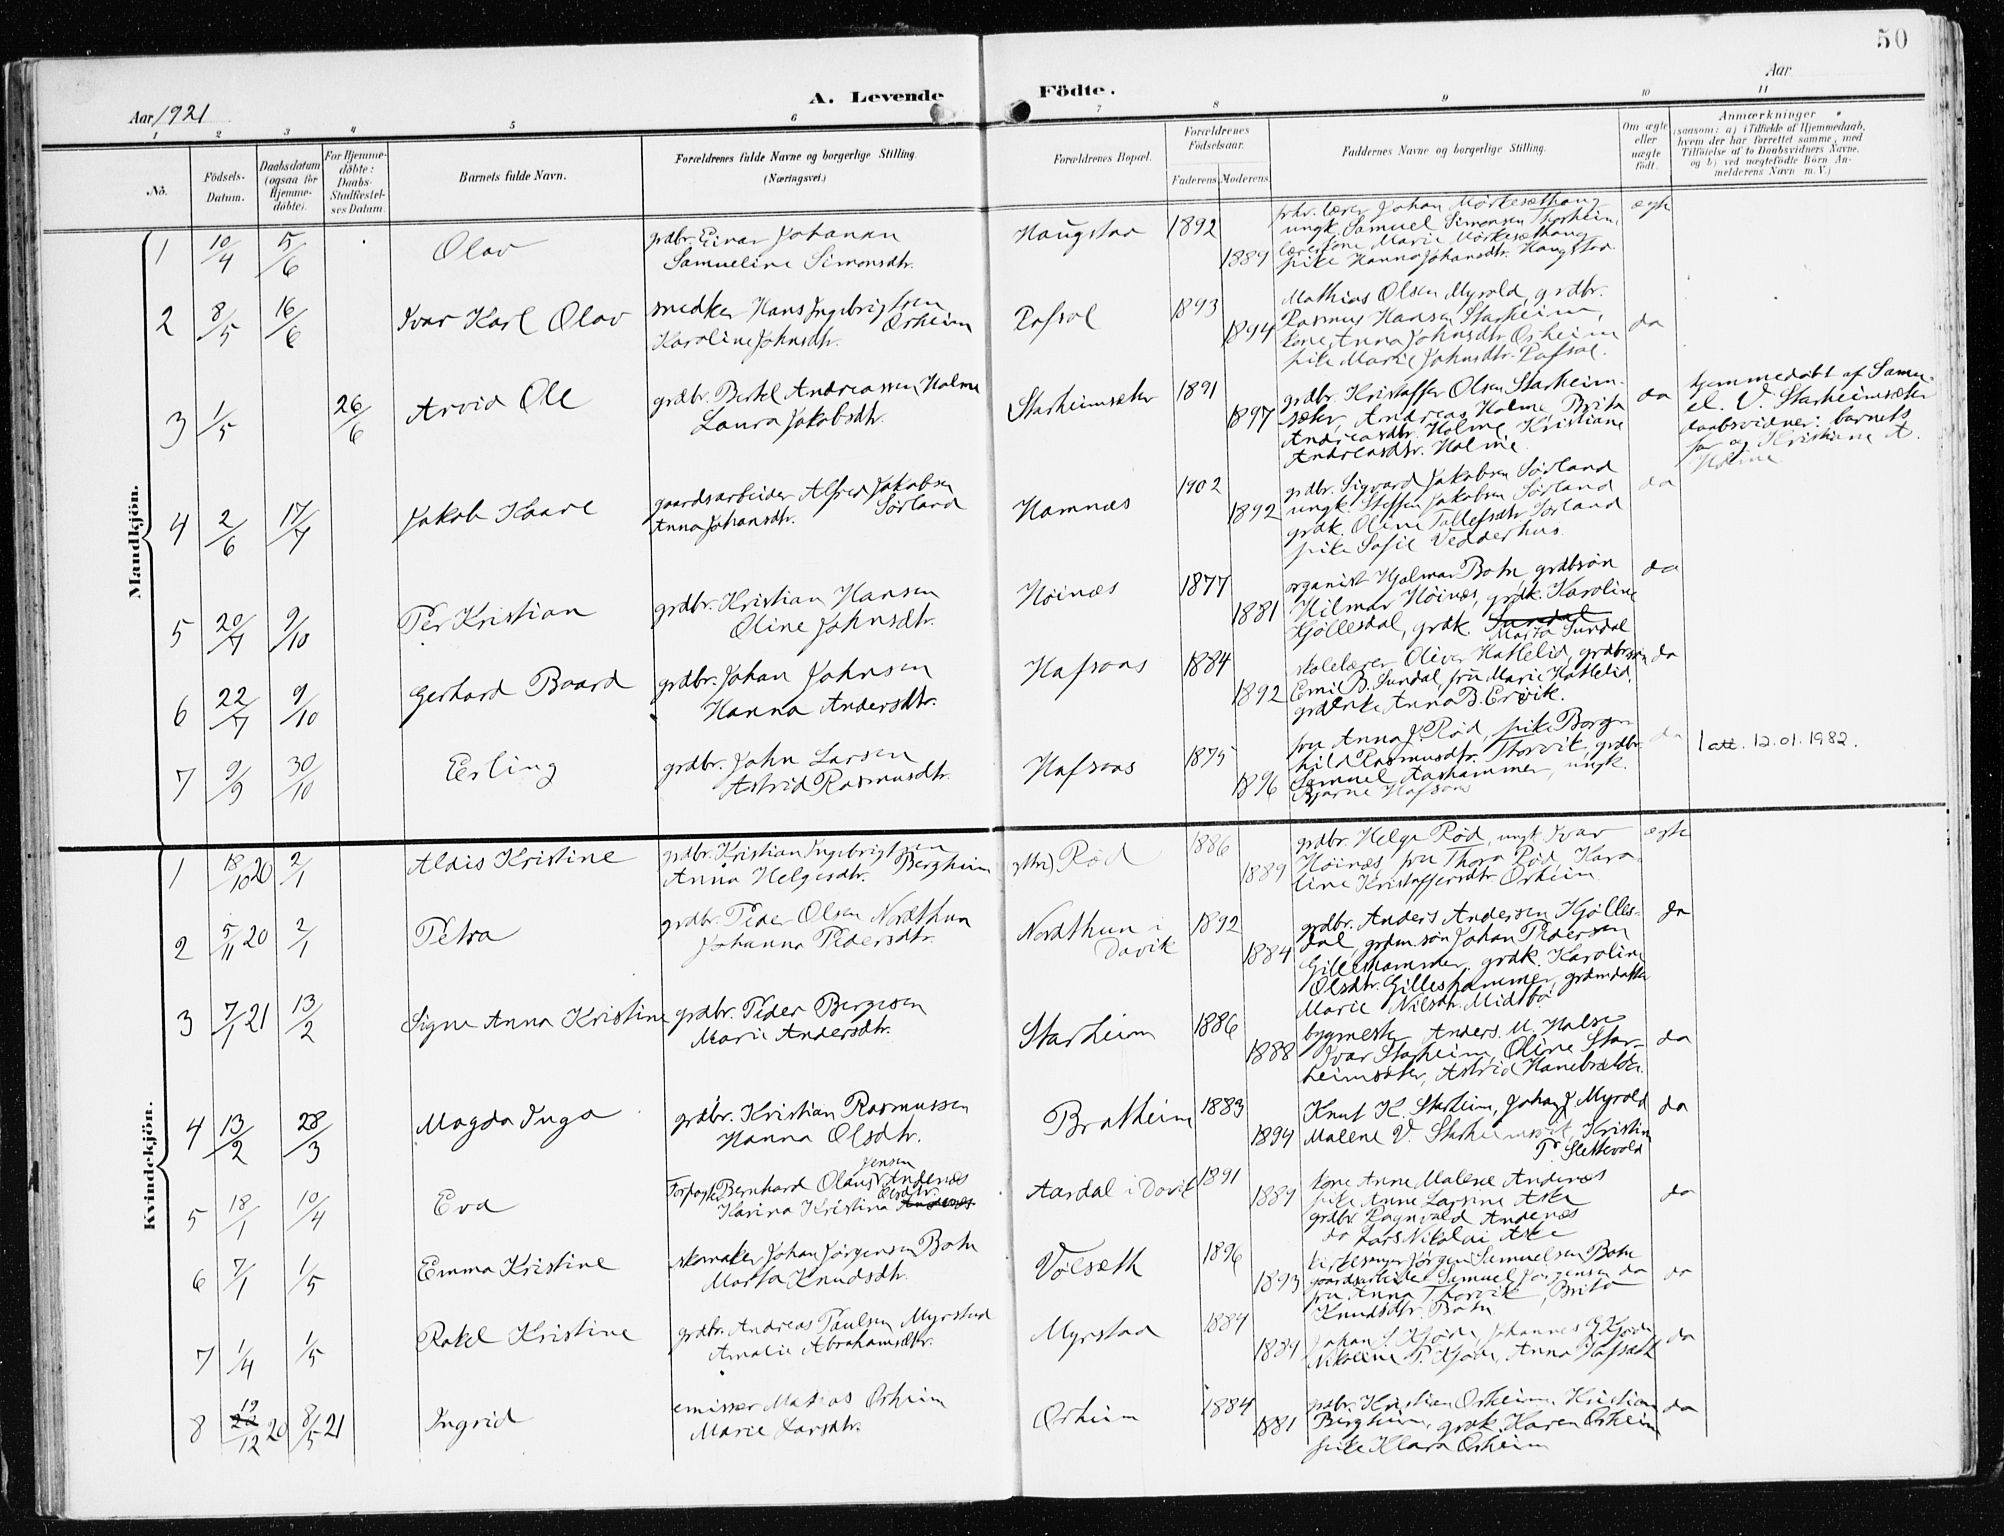 50
Aar 1921
A. Levende Födte.
Aar
1 2 3 4 5 6 7 8 9 10 11
No.
Födsels-Datum.
Daabsdatum (ogsaa for Hjemme-döbte).
For Hjemme-döbte: Daabs-Stadfæstel-ses Datum.
Barnets fulde Navn.
Forældrenes fulde Navne og borgerlige Stilling. (Næringsvei.)
Forældrenes Bopæl.
Forældrenes Födselsaar.
Faderens. Moderens.
Faddernes Navne og borgerlige Stilling.
Om ægte eller uægte födt.
Anmærkninger (saasom: a) i Tilfælde af Hjemmedaab, hvem der har forrettet samme, med Tilföielse af to Daabsvidners Navne, og b) ved uægtefödte Börn An-melderens Navn m. V.)
Mandkjön.
1 10/4 5/6 Olav
grdbr. Einar Johansen
Samueline Simonsdtr.
Haugstad 1892 1889
lærer Johan Mörkesæthaug
ungk. Samuel Simonsen Thorheim,
Marie Mörkesæthaug
pike Hanna Johansdtr. Haugstad
ægte
2 8/5 16/6 Ivar Karl Olav
smedker Hans Ingebrigtsen Orheim
Karoline Johnsdtr.
1893 1894
Mathias Olsen Myrold, grdbr.
Rasmus Hansen Starheim,
kone Anna Johnsdtr. Orheim
pike Marie Johnsdtr.
da
3 1/5 26/6 Arvid Ole
grdbr. Bertel Andreassen Holme
Laura Jakobsdtr.
Starheimsæter 1891 1897
grdbr. Kristoffer Olsen Starheim-
sæter, Andreas Holme, Brita
Andreasdtr. Holme, Kristiane
Andreasdtr. Holme
da
hjemmedöbt af Samu-
el V. Starheimsæter
daabsvidner: barnets
far og Kristiane A.
Holme
4 2/6 17/7 Jakob Kaare
gaardsarbeider Alfred Jakobsen Sörland
Anna Johansdtr.
Hamnæs 1902 1892
grdbr. Sigvard Jakobsen Sörland
ungk. Steffen Jakobsen Sörland
grdk. Oline Tollefsdtr. Sörland
pike Sofie Vedderhus.
da
5 20/7 9/10 Per Kristian
grdbr. Kristian Hansen
Oline Johnsdtr.
Höinæs 1877 1881
organist Hjalmar Botn, grdbrsön
Hilmar Höinæs, grdk. Karoline
Kjöllesdal, grdk. Sundal
Marta Sundal
da
6 22/7 9/10 Gerhard Baard
grdbr. Johan Johnsen
Hanna Andersdtr.
Hafsaas 1884 1892
skolelærer Oliver Hatlelid, grdbrsön
Emil B. Sundal, fru Marie Hatlelid,
Anna B. Ervik.
da
7 9/9 30/10 Erling
grdbr. John Larsen
Astrid Rasmusdtr.
Hafsaas 1875 1896
fru Anna J. Röd, pike Borg-
hild Rasmusdtr. Thorvik, grdbr.
Samuel Aashammer, ungk.
Bjarne Hafsaas
da
1 att. 12.01.1982.
Kvindekjön.
1 18/10 20 2/1 Aldis Kristine
grdbr. Kristian Ingebrigtsen Bergheim
Anna Helgesdtr.
Röd 1886 1889
grdbr. Helge Röd, ungk. Ivar
Höinæs, fru Thora Röd, Karo-
line Kristoffersdtr. Orheim
ægte
2 5/11 20 2/1 Petra
grdbr. Peder Olsen Nordthun
Johanna Pedersdtr.
Nordthun i Davik 1892 1884
grdbr. Anders Andersen Kjölles-
dal, grdm.sön Johan Pedersen
Gilleshammer, grdk. Karoline
Olsdtr. Gilleshammer, grdmdatter
Marie Nilsdtr. Midtbö
da
3 7/1 21 13/2 Signe Anna Kristine
grdbr. Peder Bergesen
Marie Andersdtr.
Starheim 1886 1888
bygmester Anders M. Halse
Ivar Starheim, Oline Star-
heimsæter, Astrid
da
4 13/2 28/3 Magda Inga
grdbr. Kristian Rasmussen
Hanna Olsdtr.
Bratheim 1883 1894
Knut K. Starheim, Johan J. Myrold
Malene V. Kristine
P. Slettevold
da
5 18/1 10/4 Eva
Forpagter Bernhard Olaus Jensen Andenæs
Karina Kristina Olsdtr. Andenæs
Aardal i Davik 1891 1889
kone Anne Malene Andenæs
pike Anne Larsine Aske
grdbr. Ragnvald Andenæs
do Lars Nikolai Aske
da
6 7/1 1/5 Emma Kristine
skomaker Johan Jörgensen Botn
Marta Knudsdtr.
Völsæth 1896 1893
kirkesanger Jörgen Samuelsen Botn
gaardsarbeider Samuel Jörgensen do
fru Anna Thorvik, Brita
Knudsdtr. Botn
da
7 1/4 1/5 Rakel Kristine
grdbr. Andreas Paulsen Myrstad
Amalie Abrahamsdtr.
Myrstad 1884 1884
Johan S. Kjöde, Johannes J. Kjöde
Nikoline P. Kjöde, Anna Hafsæth
da
8 19/12 20 8/5 21 Ingrid
emissær Matias Orheim
Marie Larsdtr.
Orheim 1884 1881
grdbr. Kristian Orheim, Kristian
Bergheim, grdk. Karen Orheim
pike Klara Orheim
da